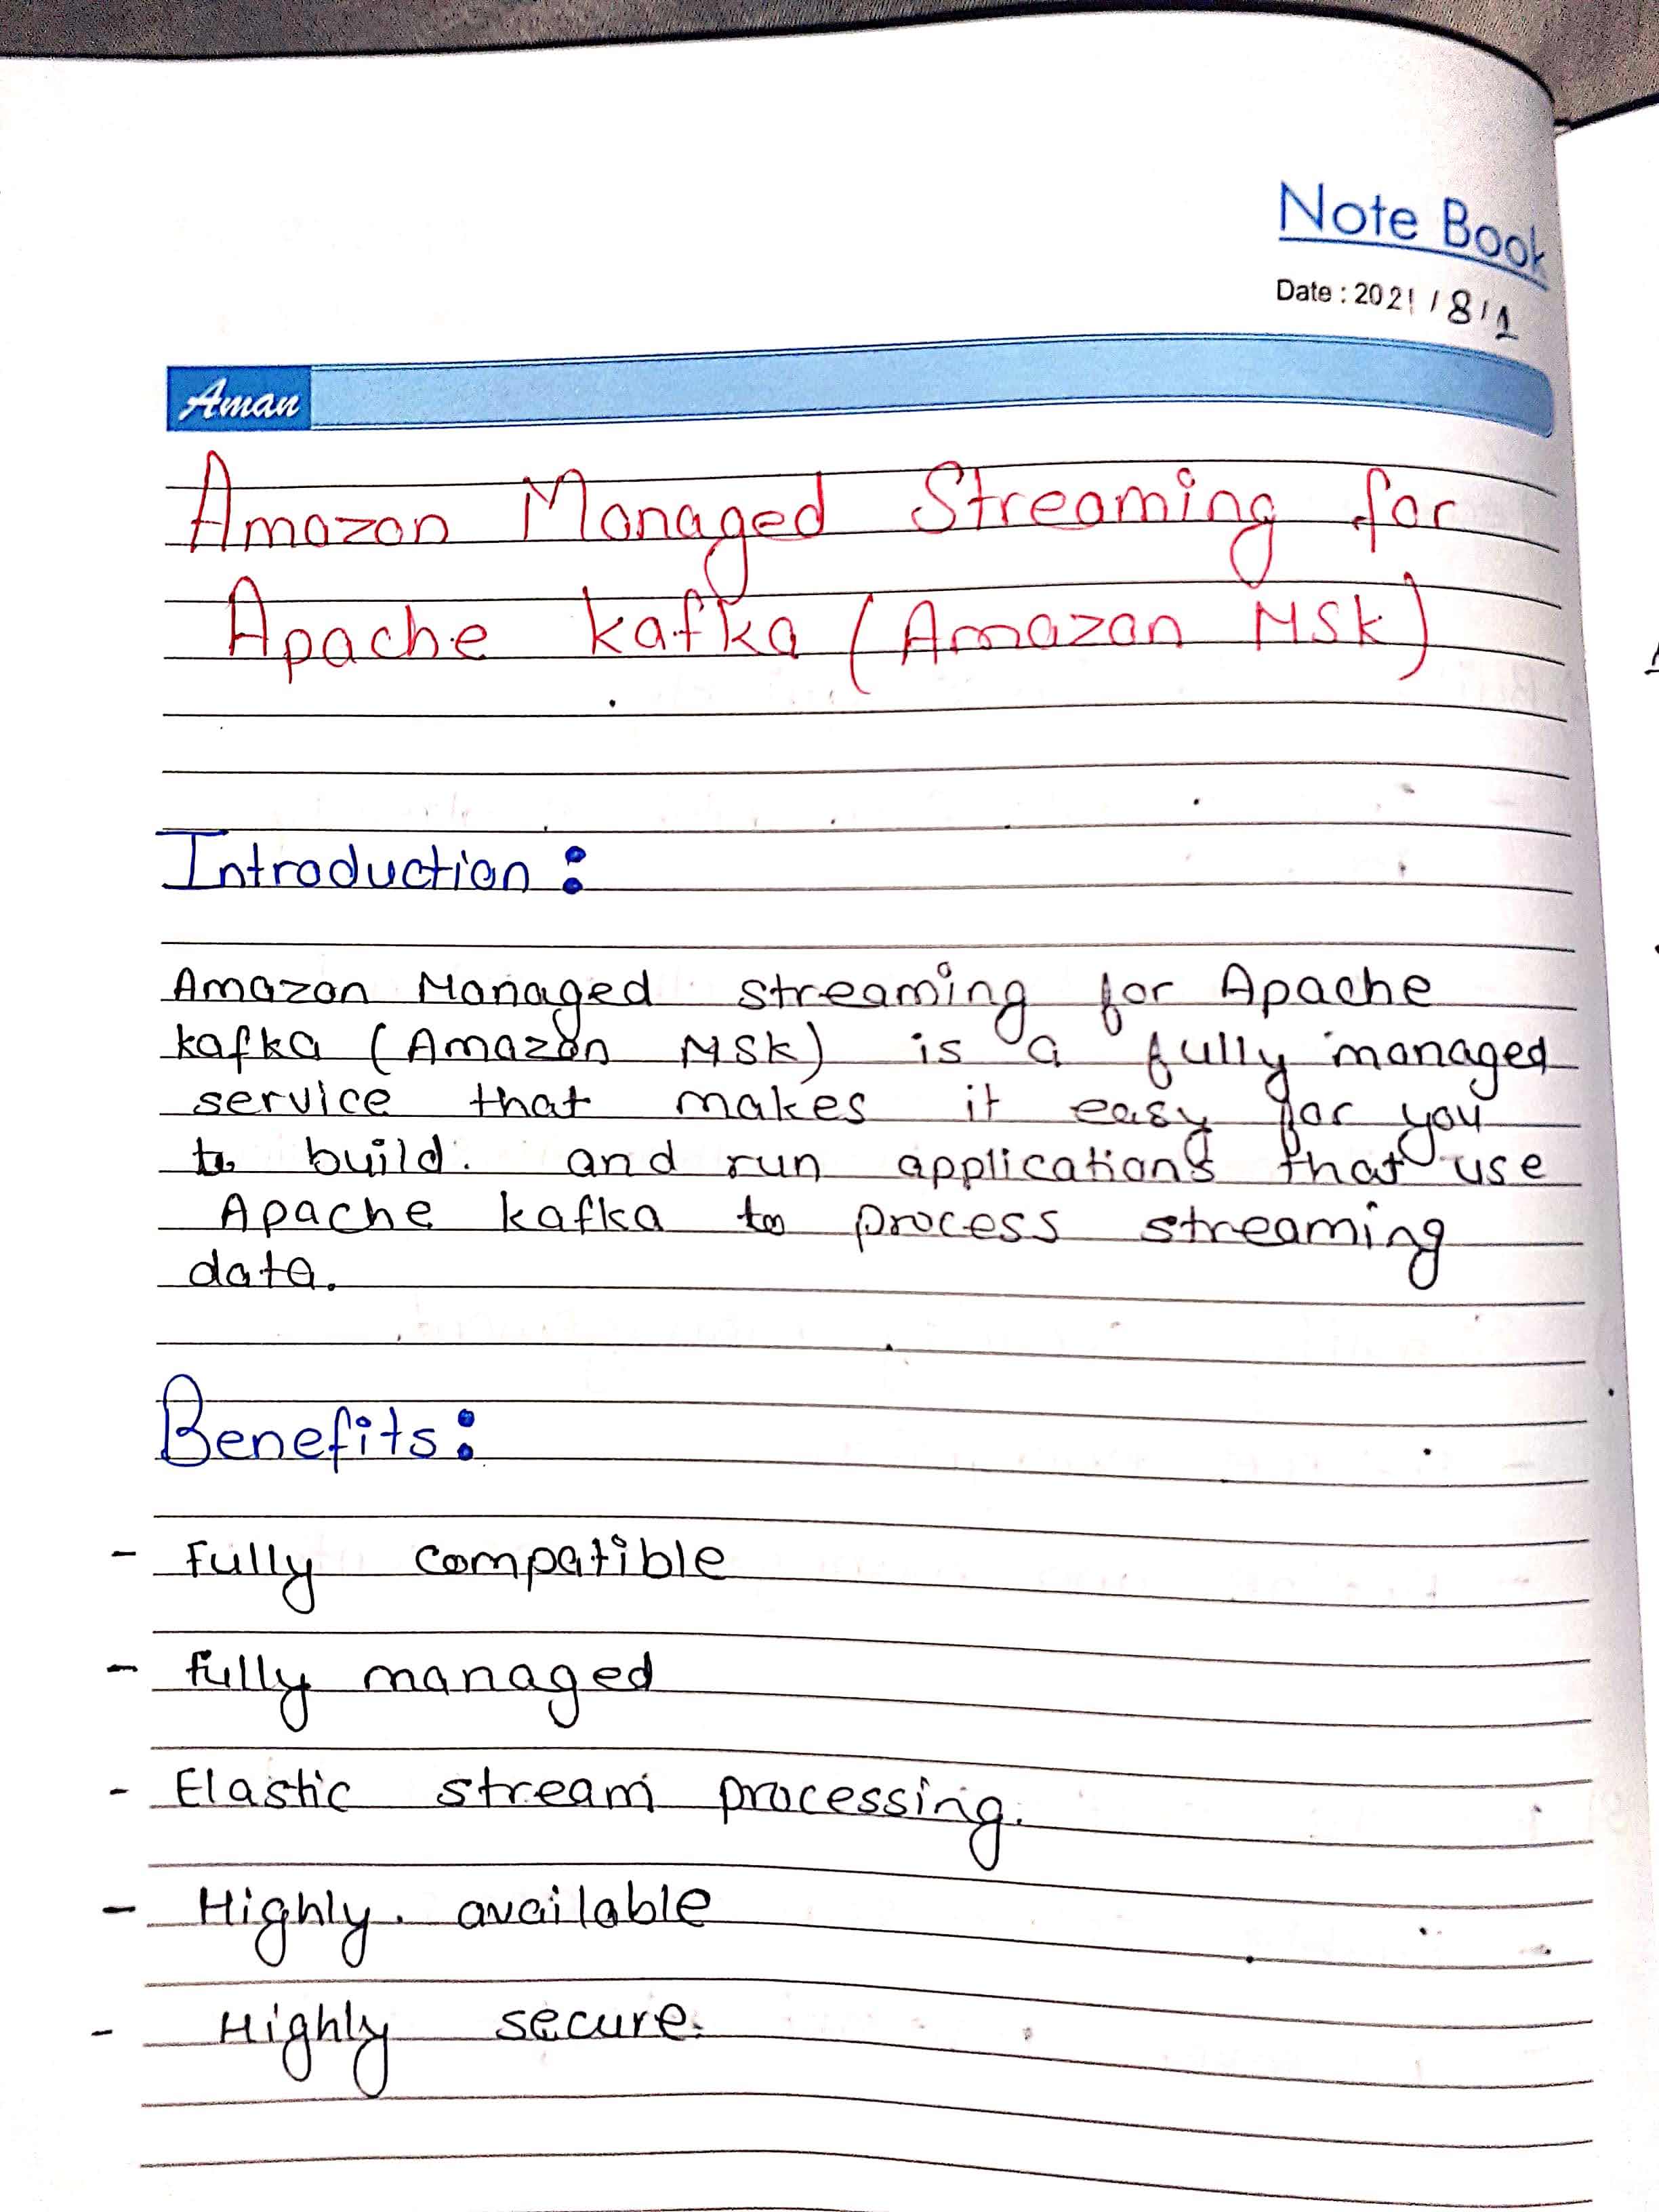 Note Book
Date : 2021 / 8 / 1
Aman
Amazon Managed Streaming for
Apache kafka (Amazon MSk)
Introduction :
Amazon Managed streaming for Apache
kafka (Amazon MSk) is a fully managed
service that makes it easy for you
to build. and run applications that use
Apache kafka to process streaming
data.
Benefits :
- Fully compatible
- fully managed
- Elastic stream processing.
- Highly. available
- Highly secure.